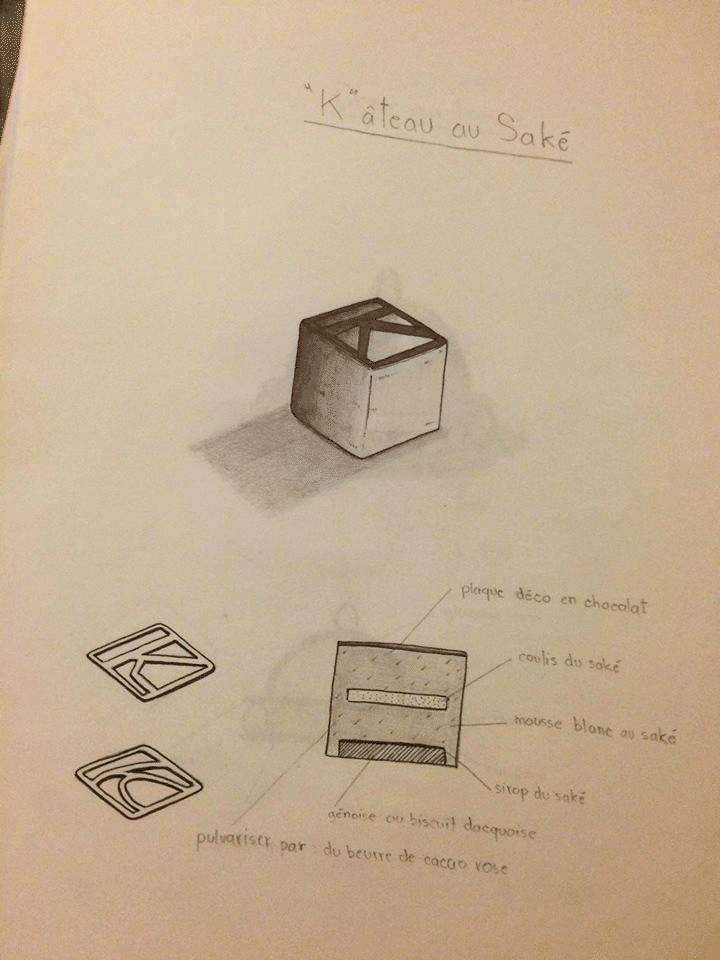 "K"âteau au Saké
K
plaque déco en chocolat
coulis du saké
K
mousse blanc au saké
K
sirop du saké
génoise ou biscuit dacquoise
pulvariser par du beurre de cacao rose